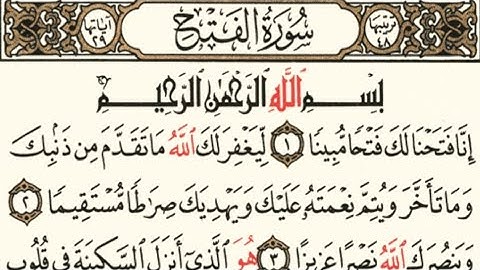 ترتيبها ٤٨ سُورَةُ الفَتْحِ آياتها ٢٩
بِسْمِ ٱللَّهِ ٱلرَّحْمَٰنِ ٱلرَّحِيمِ
إِنَّا فَتَحْنَا لَكَ فَتْحًا مُّبِينًا ١ لِّيَغْفِرَ لَكَ ٱللَّهُ مَا تَقَدَّمَ مِن ذَنۢبِكَ
وَمَا تَأَخَّرَ وَيُتِمَّ نِعْمَتَهُۥ عَلَيْكَ وَيَهْدِيَكَ صِرَٰطًا مُّسْتَقِيمًا ٢
وَيَنصُرَكَ ٱللَّهُ نَصْرًا عَزِيزًا ٣ هُوَ ٱلَّذِىٓ أَنزَلَ ٱلسَّكِينَةَ فِى قُلُوبِ